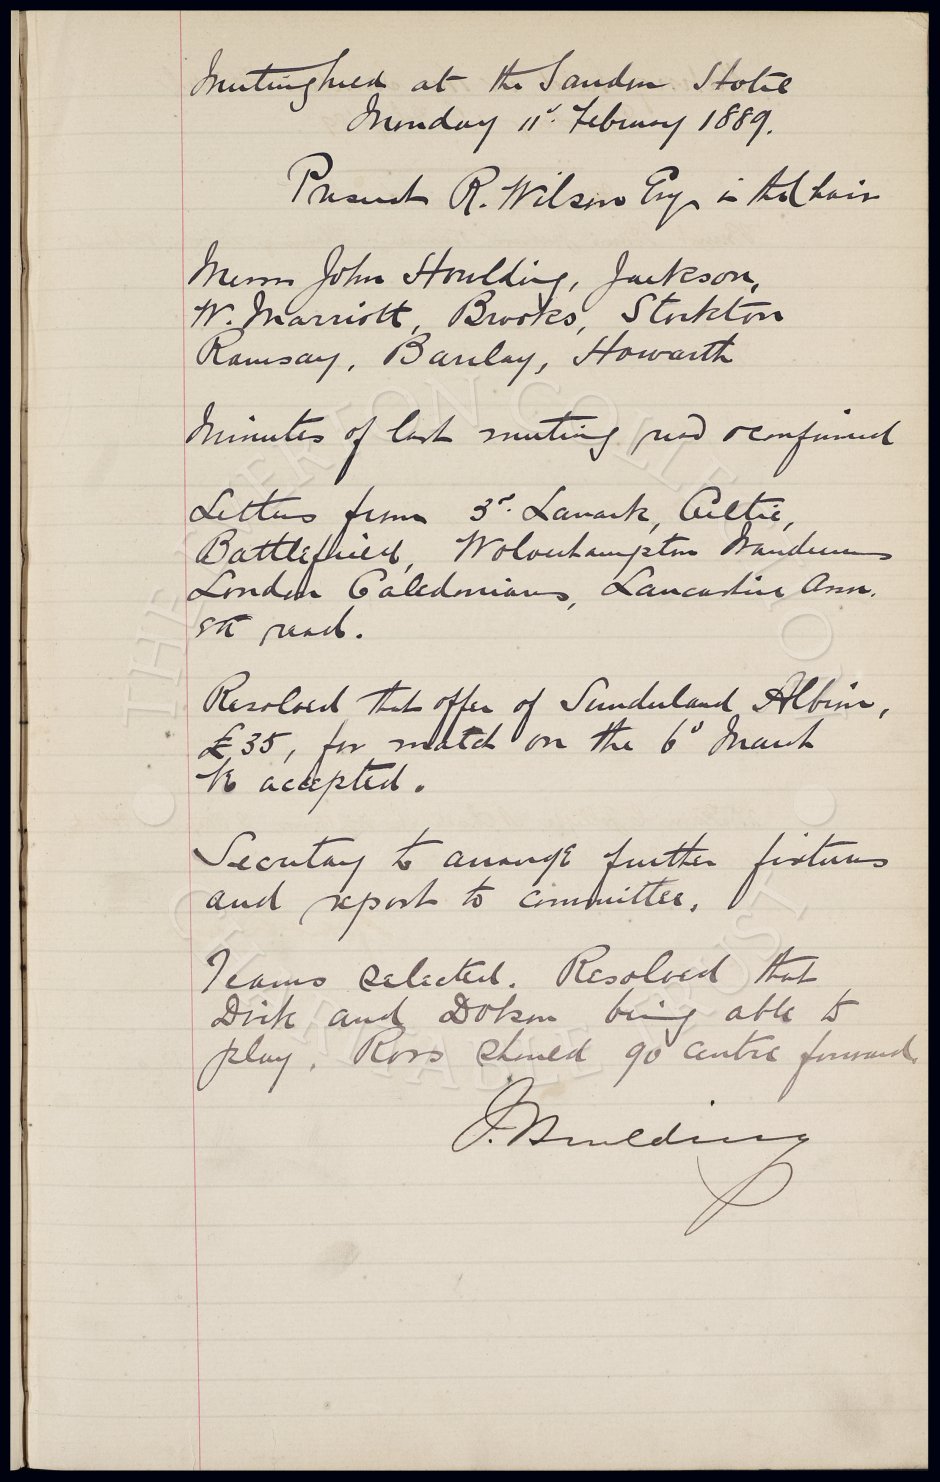 Meeting held at the Sandon Hotel
Monday 11th February 1889.
Present R. Wilson Esqr in the Chair
Messrs John Houlding, Jackson,
W. Marriott, Brooks, Stockton
Ramsay, Barclay, Howarth
Minutes of last meeting read & confirmed
Letters from 3rd Lanark, Celtic,
Battlefield, Wolverhampton Wanderers
London Caledonians, Lancashire Assn.
etc read.
Resolved that offer of Sunderland Albion,
£35, for match on the 6th March
be accepted.
Secretary to arrange further fixtures
and report to committee.
Teams selected. Resolved that
Dick and Dobson being able to
play, Ross should go centre forward.
J. Houlding
THE EVERTON COLLECTION
CHARITABLE TRUST